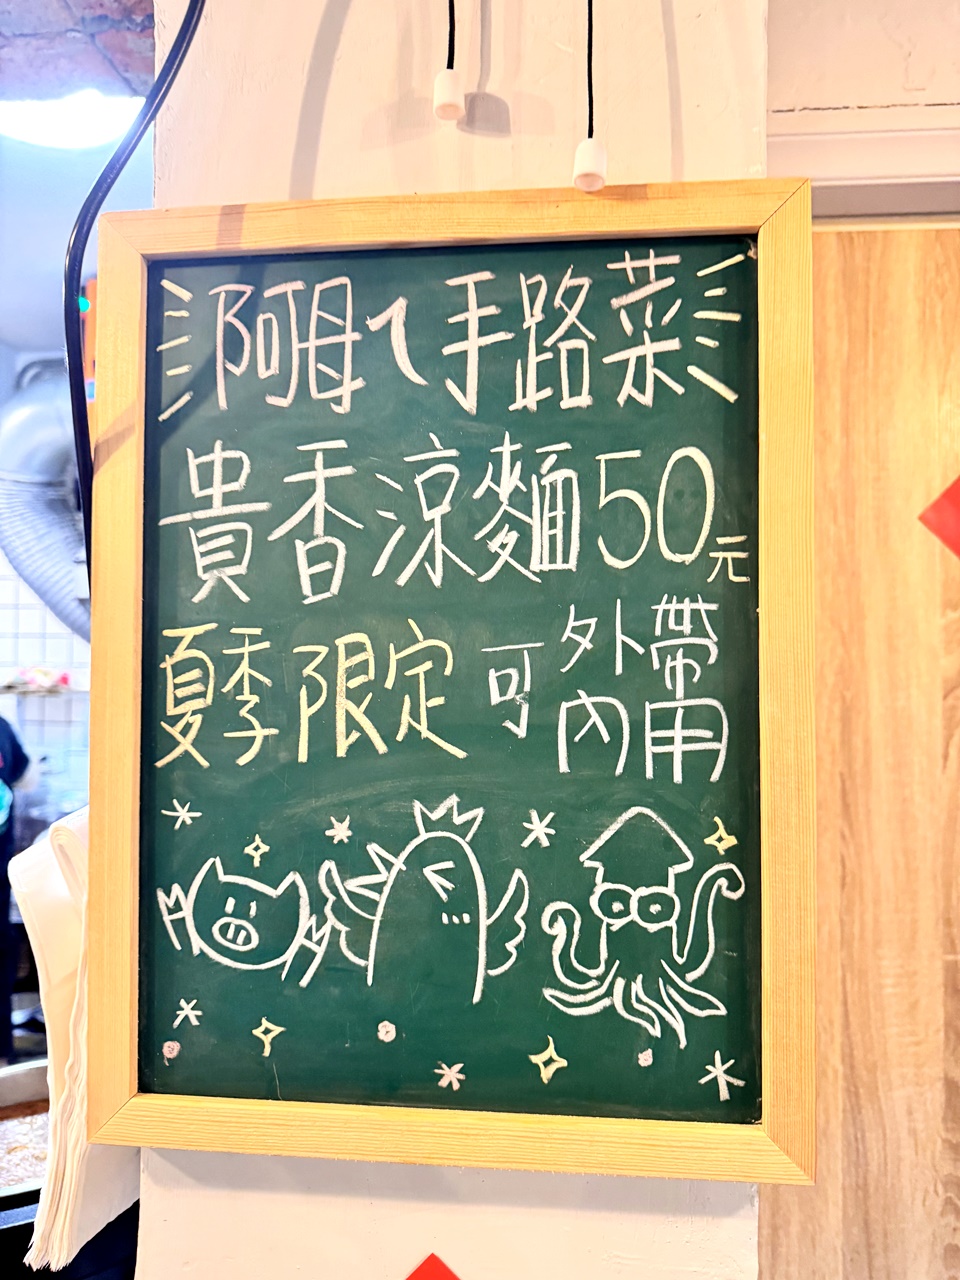 阿母ㄟ手路菜
貴香涼麵50元
夏季限定 可外帶
內用